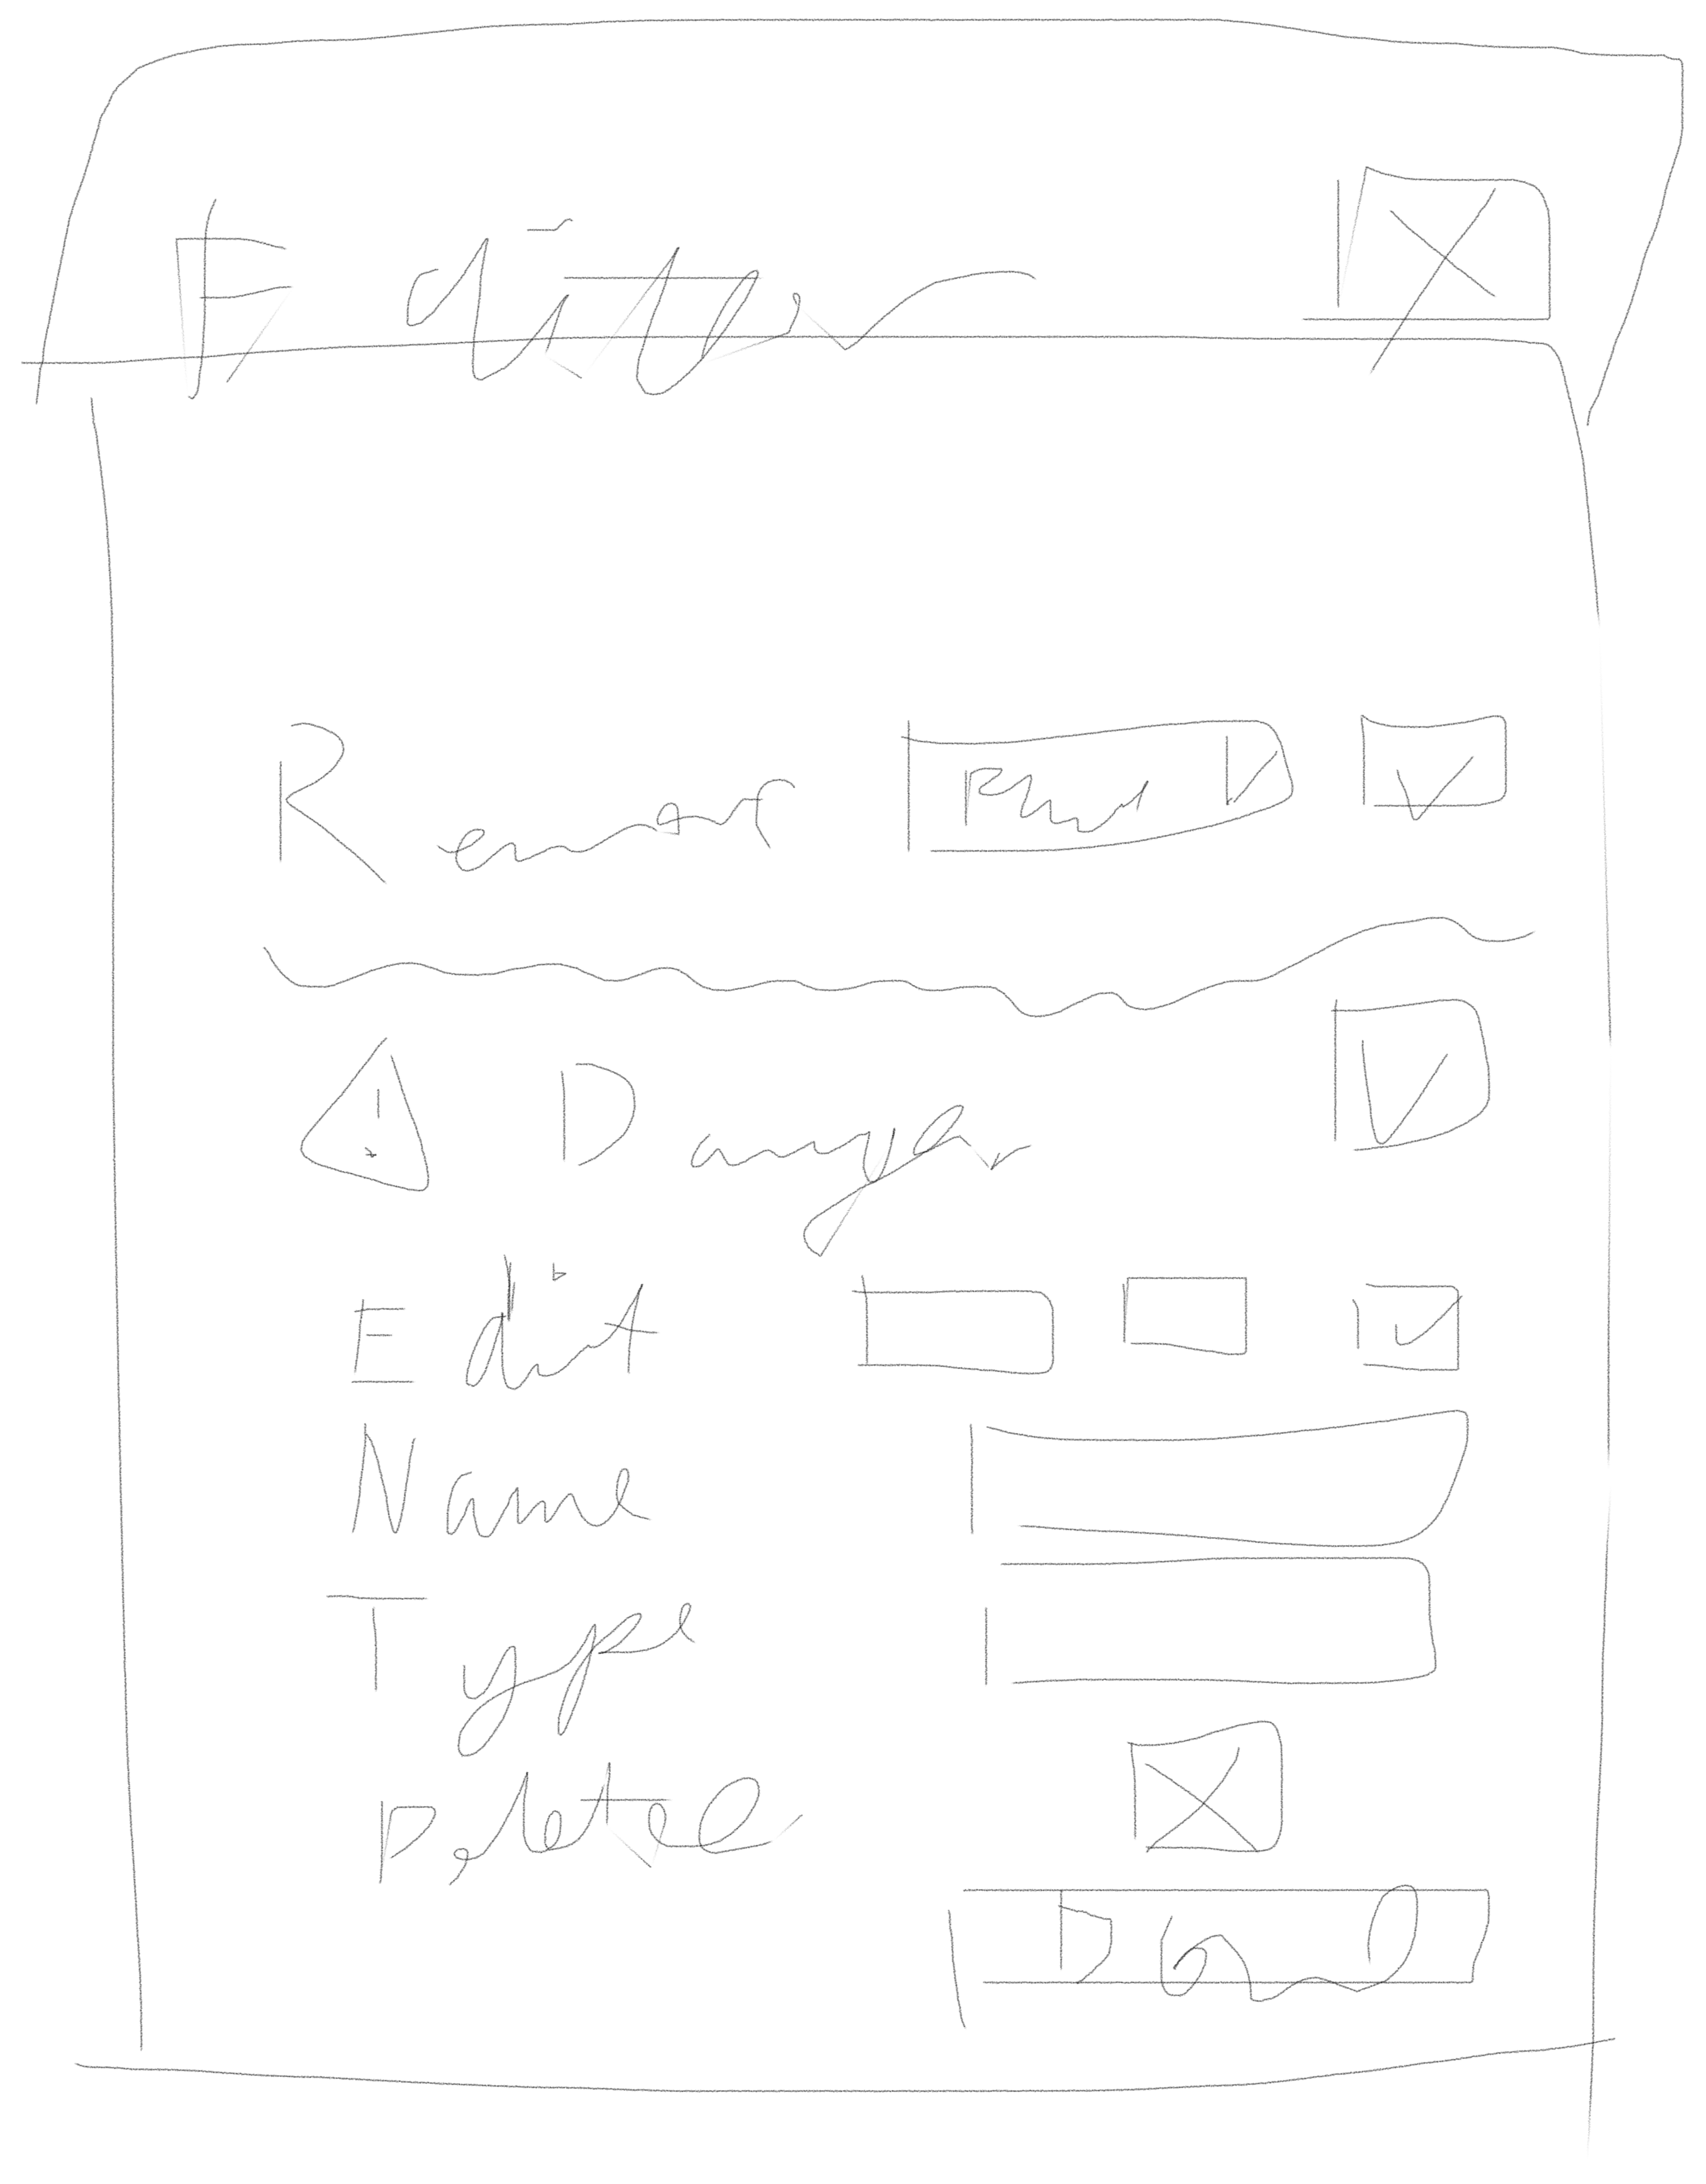 Editor
! Danger
Edit
Name
Type
Delete
Done